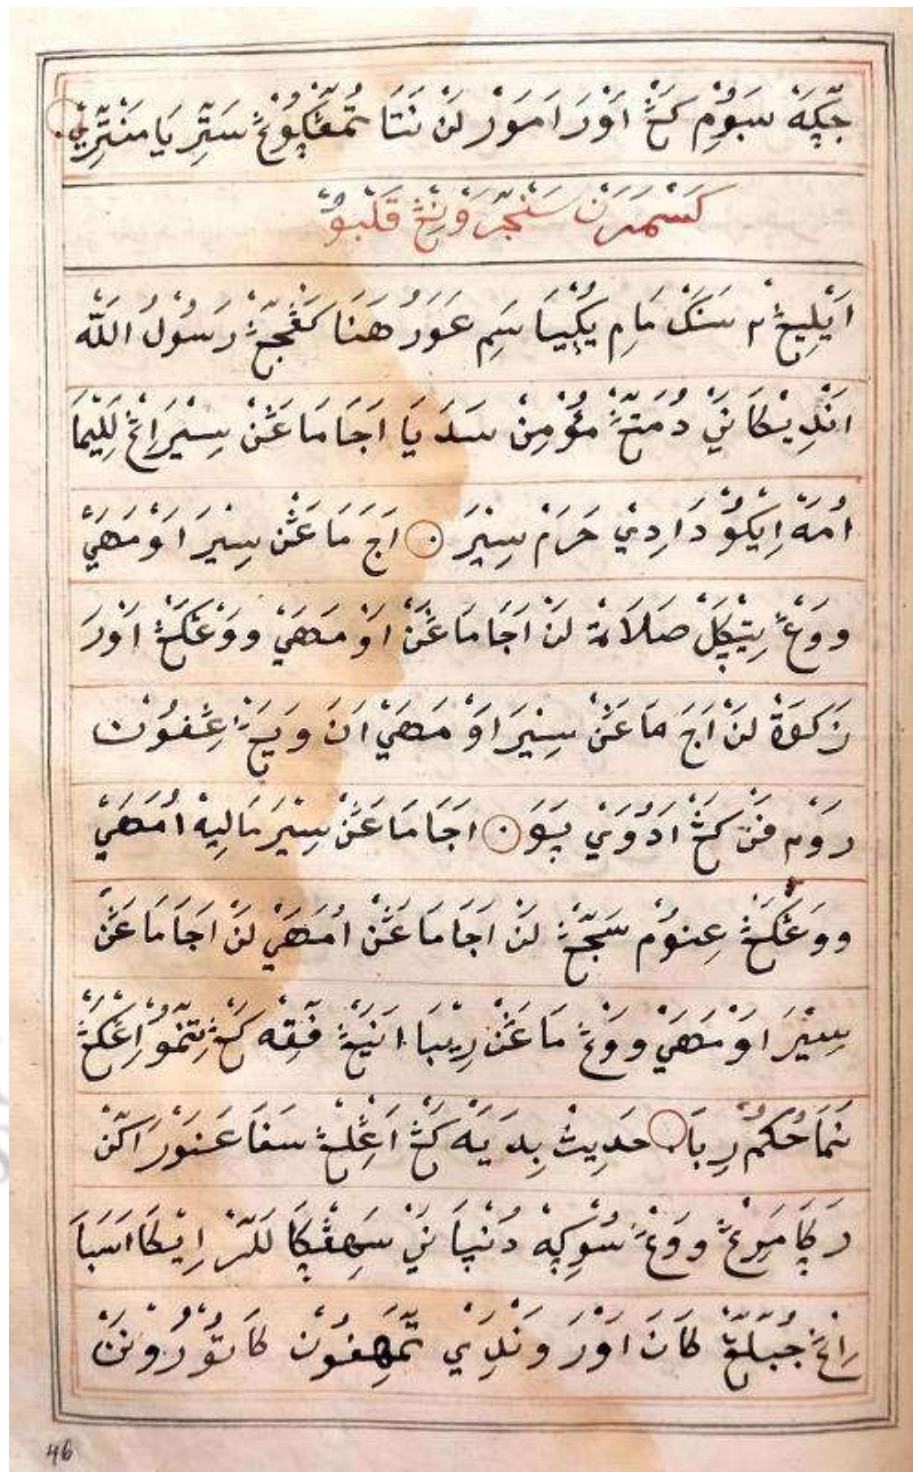 جِڮَهْ سَبُوْمِ كَڠْ اَوْرَ امَوْرْ لَنْ نَتَا تُمَڠْڮُوْڠْ سَتْرِ يَا مَنْتْرِيْ
كَسْمَرَنْ سَنْجَرَوْنِڠْ قَلْبُوْ
اَيْلِيڠْ٢ سَنَک مَامِ يَکْتِيَا سَمِ عَوَرُهَنَا کَڠْجَڠْ رَسُوْلُ اللّٰه
اَنْدِيْکَا نَيْ دُمَتَڠْ مُؤْمِنْ سَدَ يَا اَجَا مَاعَنْ سِيْرَاڠْ لَلِيْمَا
اُمَهْ اِيْکُوْ دَادِيْ حَرَمْ سِيْرَ ۞ اَجَ مَاعَنْ سِيْرَ اَوْمَهَيْ
ووَڠْ تِيْڠْکَلْ صَلَاةْ لَنْ اَجَامَاعَنْ اَوْمَهَيْ ووْڠْکَڠْ اَوْرَ
زَکَوةْ لَنْ اَجَ مَاعَنْ سِيْرَ اَوْمَهَيْ اَنَ وَيَڠْ عِڠْفُوْن
رَوْ٢ فَنْ کَڠْ اَدُوْوَيْ ڮَوَ ۞ اَجَامَاعَنْ سِيْرَ مَالِيهْ اُمَهَيْ
ووَڠْکَڠْ عِنُوْمْ سَجَڠْ لَنْ اَجَامَاعَنْ اُمَهَيْ لَنْ اَجَامَاعَنْ
سِيْرَ اَوْمَهَيْ ووَڠْ مَاعَنْ رِيْبَا اَنَيَڠْ فِقِهْ کَڠْ تِتَمُوْ اِڠْکَڠْ
نَمَا حُکُمْ رِبَا ۞ حَدِيثْ بِدَ يَهْ کَڠْ اَڠَلَڠْ سَفَا عَنَوْرَاکَنْ
رَکَا مَرِڠْ ووَڠْ سُوْڮِهْ دُنْيَا نَيْ سَهِڠْڮَا لَلَرْ اِيْکَا اَسْبَا
رَاڠْ جُبَلَڠْ کَانَ اَوْرَ وَنْدَيْ تَمَهِفُوْن کَاتَوْرُوْنَنْ
46